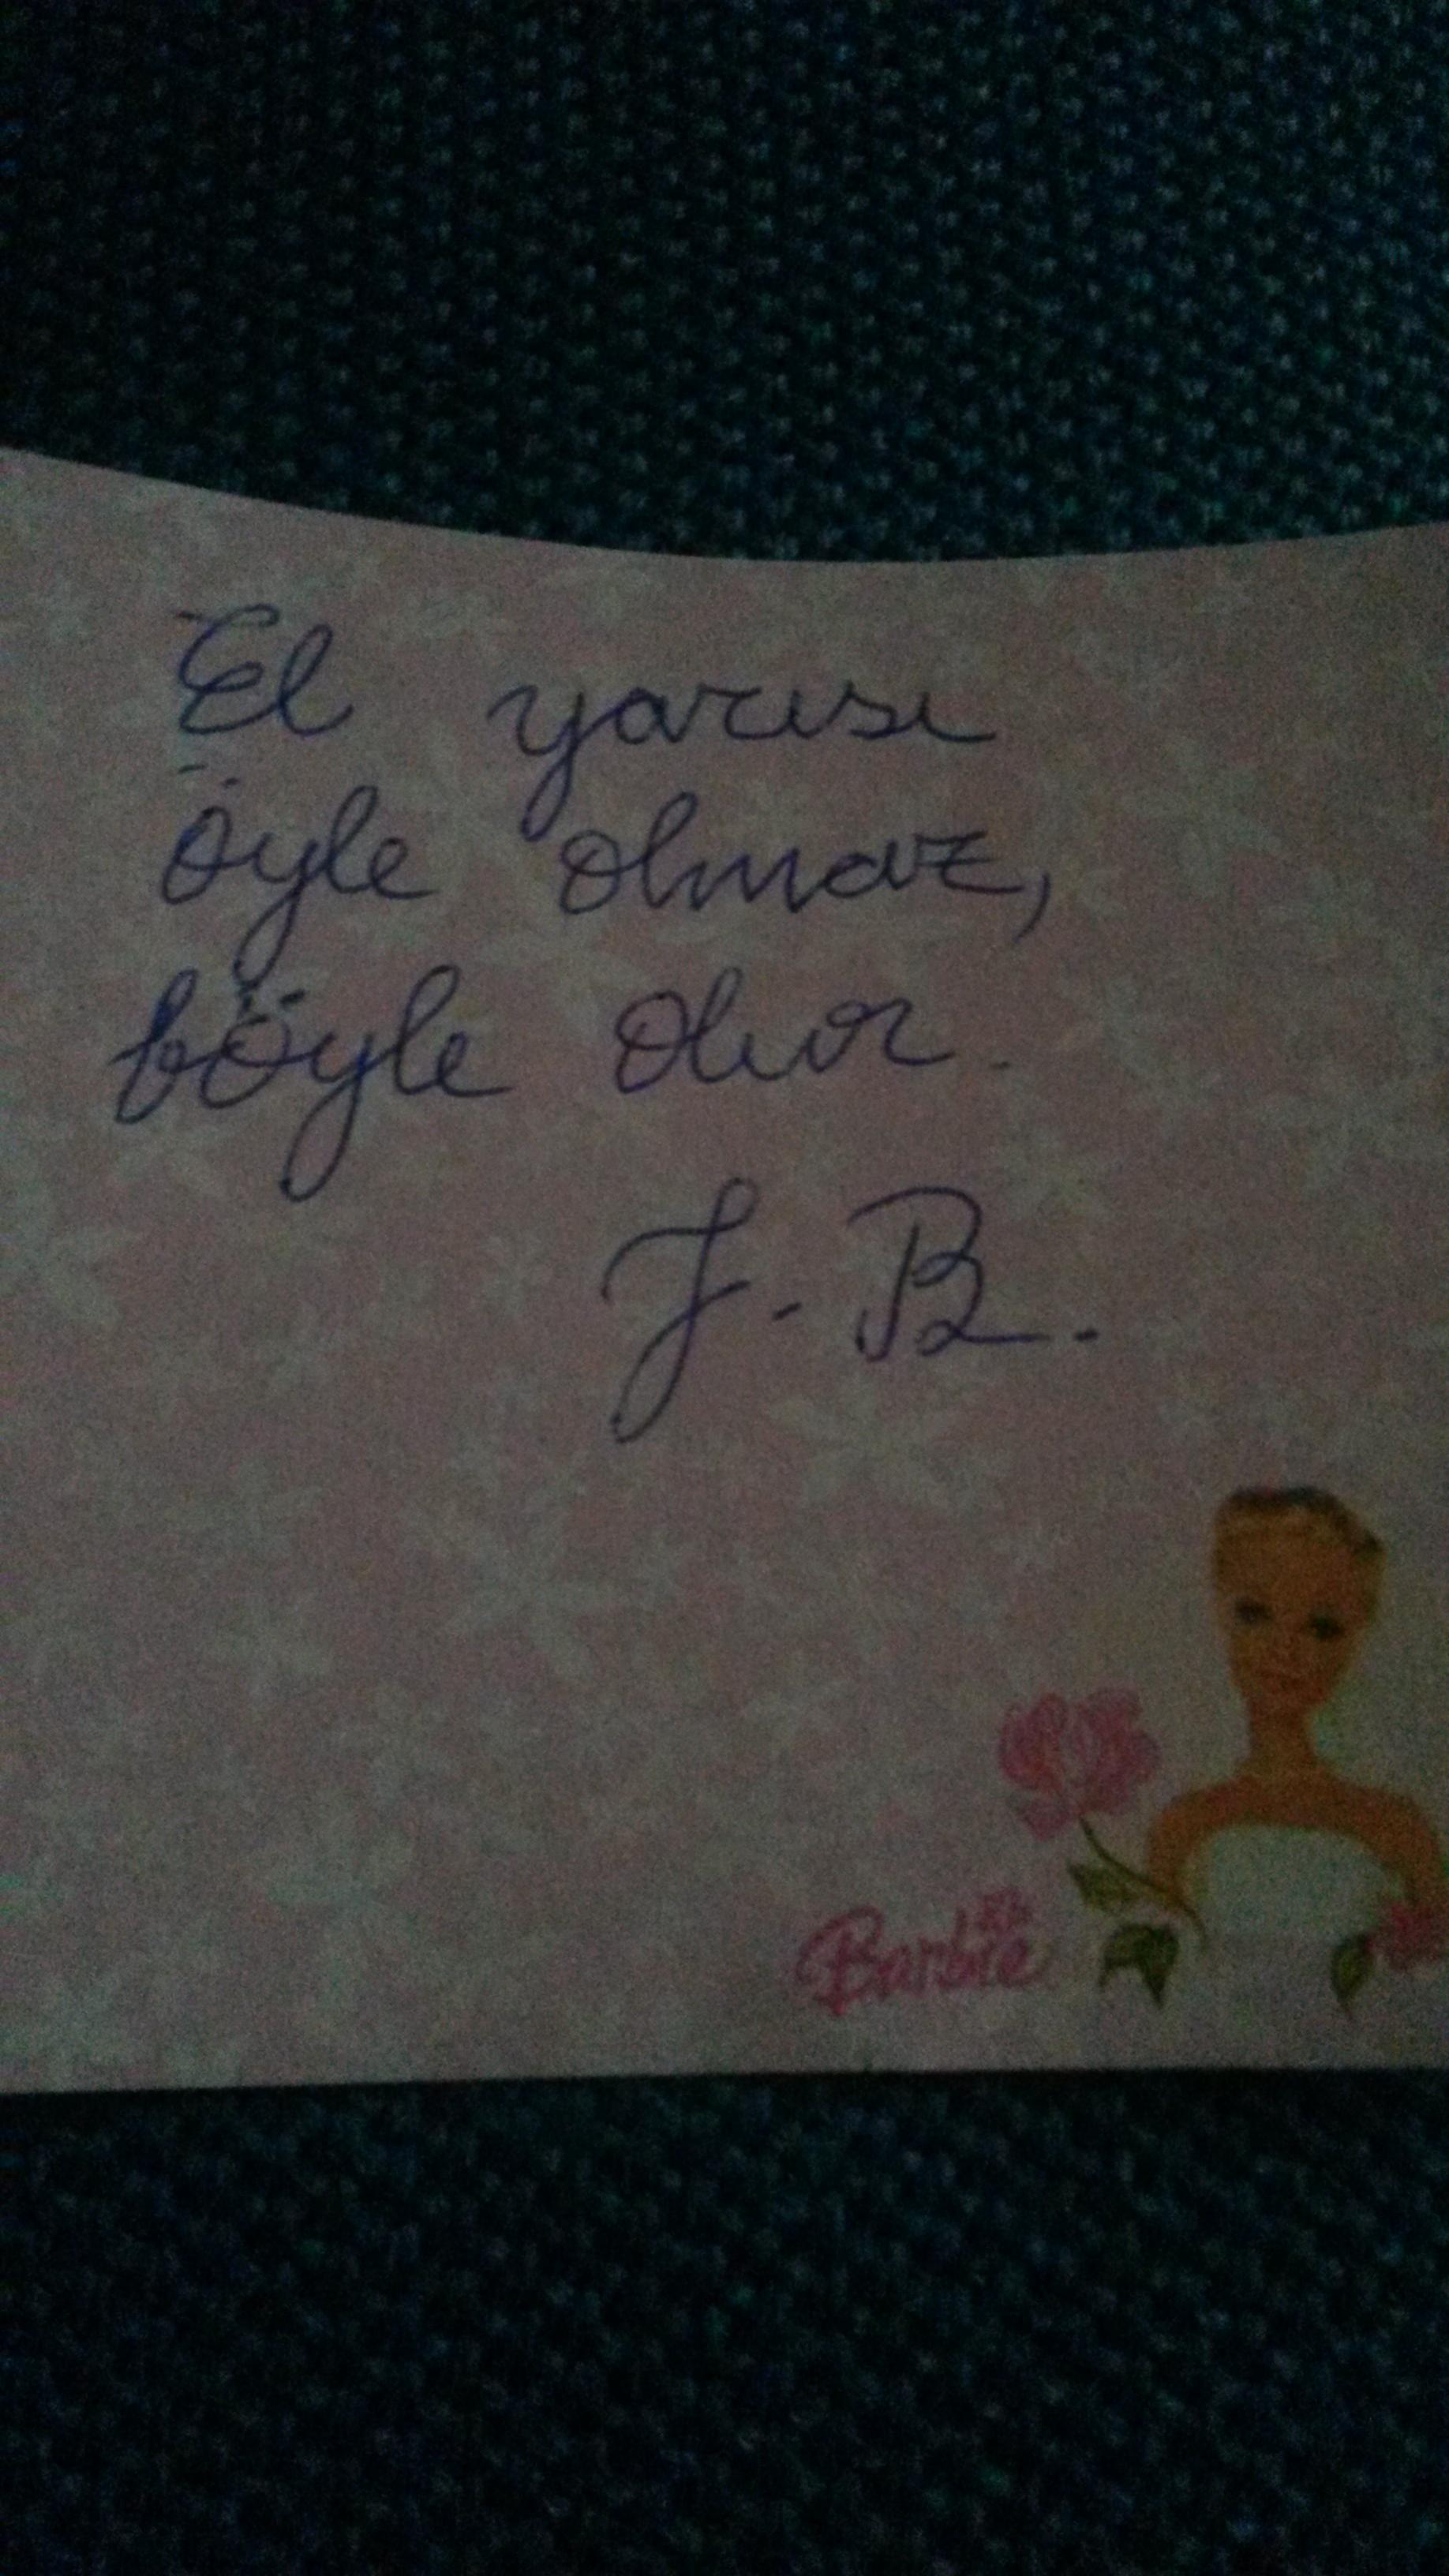 El yarısı
öyle olmaz,
böyle olur.
J. B.
Barbie